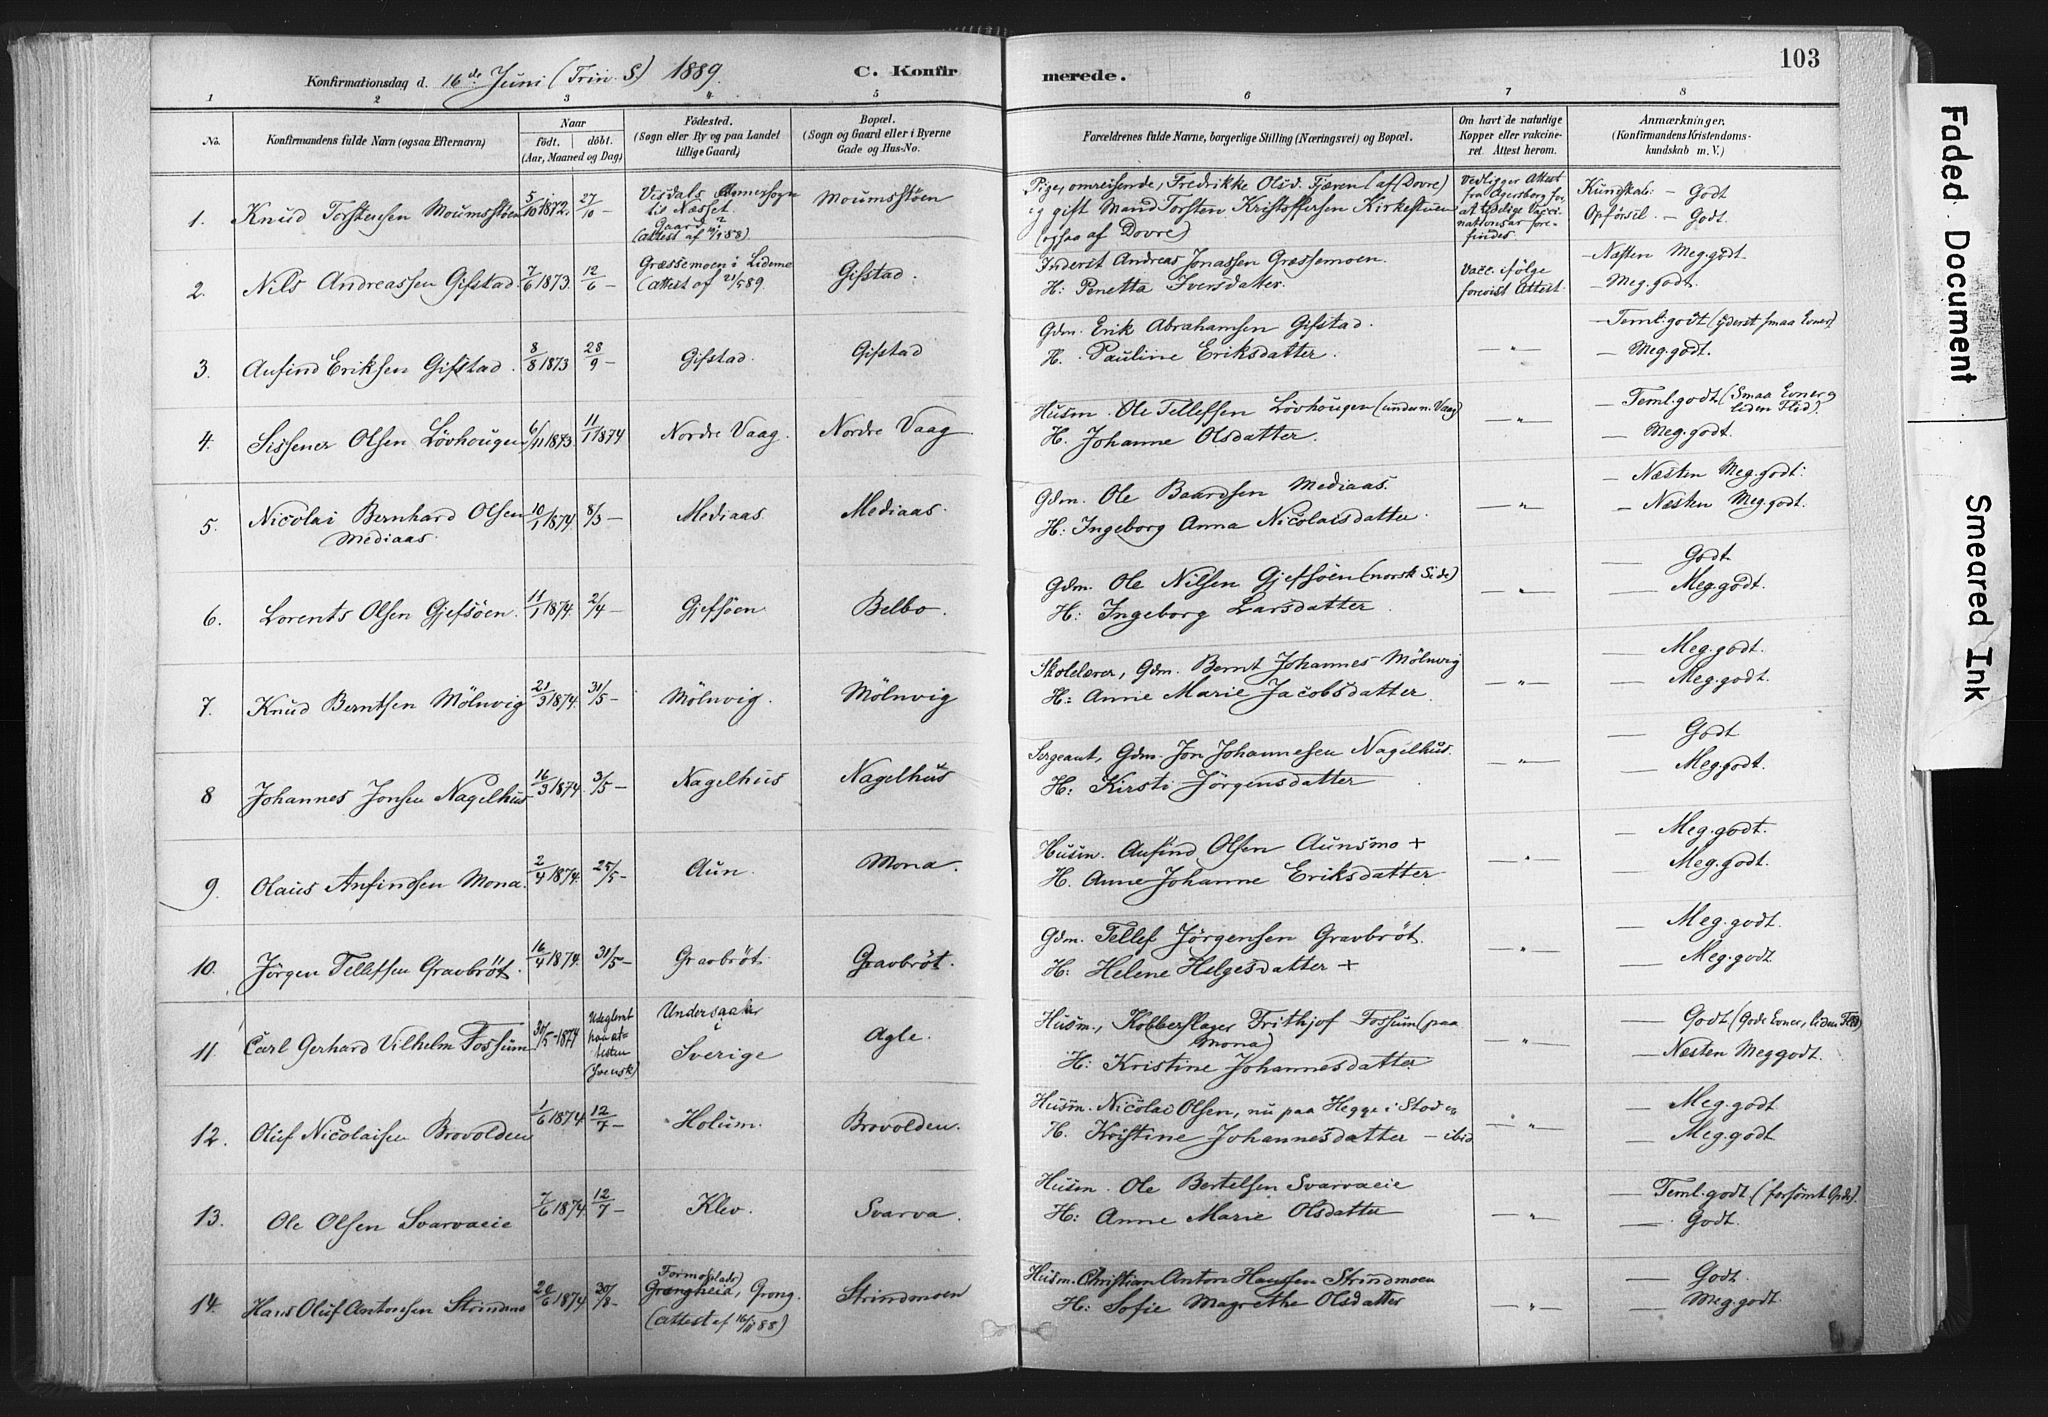 103
Konfirmationsdag d. 16de Juni (Trin. S.) 1889.
C. Konfirmerede.
1 2 3 4 5 6 7 8
No.
Konfirmandens fulde Navn (ogsaa Efternavn)
Naar
födt. döbt.
(Aar, Maaned og Dag)
Födested.
(Sogn eller By og paa Landet
tillige Gaard)
Bopæl.
(Sogn og Gaard eller i Byerne
Gade og Hus-No.
Forældrenes fulde Navne, borgerlige Stilling (Næringsvei) og Bopæl.
Om havt de naturlige
Kopper eller vaccineret.
Attest herom.
Anmærkninger,
(Konfirmandens Kristendomskundskab
m. V.)
1. Knud Torstensen Moumsstöen 5/10 1872. 27/10 –
Visdals Annexsogn
til Næsset.
Gaard?
(Attest af
Moumsstöen
Pige, omreisende, Fredrikke Olsd. Tjæren (af Dovre)
og gift Mand Torsten Kristoffersen Kirkestuen
(ogsaa af Dovre)
Vedligger Attest
fra
at tydelige Vaccinationsar
forefindes.
Kundskab: – Godt
Opförsel. – Godt.
2. Nils Andreassen Gifstad 7/6 1873. 12/6 –
Græssemoen i Lierne
(Attest af 21/5 89.
Gifstad.
Inderst Andreas Jonassen Græssemoen.
H: Penetta Iversdatter.
Vacc. ifölge
forevist Attest.
– Næsten Meg. godt.
– Meg. godt.
3. Anfind Eriksen Gifstad. 8/8 1873 28/9 –
Gifstad.
Gifstad
Gdm. Erik Abrahamsen Gifstad.
H. Pauline Eriksdatter.
– " –
– Teml. godt (yderst smaa Evner)
– Meg. godt.
4. Sissener Olsen Lövhougen 6/11 1873. 11/1 1874
Nordre Vaag.
Nordre Vaag
Husm. Ole Tellefsen Lövhougen (under n. Vaag)
H. Johanne Olsdatter.
– " –
– Teml. godt (Smaa Evner og
liden Flid).
– Meg. godt.
5. Nicolai Bernhard Olsen
Mediaas.
10/1 1874. 8/3 –
Mediaas.
Mediaas.
Gdm. Ole Baardsen Mediaas.
H: Ingeborg Anna Nicolaisdatter.
– " –
– Næsten Meg. godt.
– Næsten Meg. godt.
6. Lorents Olsen Gjefsöen. 11/1 1874. 2/4 –
Gjefsöen
Belbo.
Gdm. Ole Nilsen Gjefsöen (norsk Side)
H: Ingeborg Larsdatter.
– " –
Godt
– Meg. godt.
7. Knud Berntsen Mölnvig 21/3 1874. 31/5 –
Mölnvig.
Mölnvig
Skolelærer, Gdm. Bernt Johannes Mölnvig
H: Anne Marie Jacobsdatter.
– " –
– Meg. godt.
– Meg. godt.
8 Johannes Jonsen Nagelhus. 16/3 1874. 3/5 –
Nagelhus
Nagelhus
Sergeant, Gdm. Jon Johannesen Nagelhus.
H: Kirsti Jörgensdatter
– " –
– Godt
– Meg. godt.
9. Olaus Anfindsen Mona. 2/4 1874. 25/5 –
Aun.
Mona.
Husm. Anfind Olsen Aunsmo +
H. Anne Johanne Eriksdatter.
– " –
– Meg. godt.
– Meg. godt.
10. Jörgen Tellefsen Gravbröt. 16/4 1874. 31/5 –
Gravbröt.
Gravbröt.
Gdm. Tellef Jörgensen Gravbröt.
H: Helene Helgesdatter +
– " –
– Meg. godt.
– Meg. godt
11. Carl Gerhard Vilhelm Fossum 30/5 – 1874
Udeglemt
paa attesten
(svensk)
Undersaaker
i
Sverige
Agle.
Husm., Kobberslager Frithjof Fossum (paa
Mona)
H: Kristine Johannesdatter
– " –
– Godt (Gode Evner, liden Flid)
– Næsten Meg godt.
12. Oluf Nicolaisen Brovolden 1/6 1874. 12/7 –
Holum.
Brovolden.
Husm. Nicolai Olsen, nu paa Hegge i Stod og
H. Kristine Johannesdatter – ibid
– " –
– Meg. godt
– Meg. godt
13. Ole Olsen Svarvaeie 7/6 1874 12/7 –
Klev.
Svarva.
Husm. Ole Bertelsen Svarvaeie
H: Anne Marie Olsdatter
– " –
– Teml. godt (forsömt Opdr.).
– Godt.
14. Hans Oluf Antonsen Strindmo 26/6 1874 30/8 –
Formo(plads)
Grængheia, Grong.
(Attest af 16/11 88)
Strindmoen
Husm. Christian Anton Hanssen Strindmoen
H: Sofie Magrethe Olsdatter
– " –
– Godt.
– Meg. godt
Faded Document
Smeared Ink